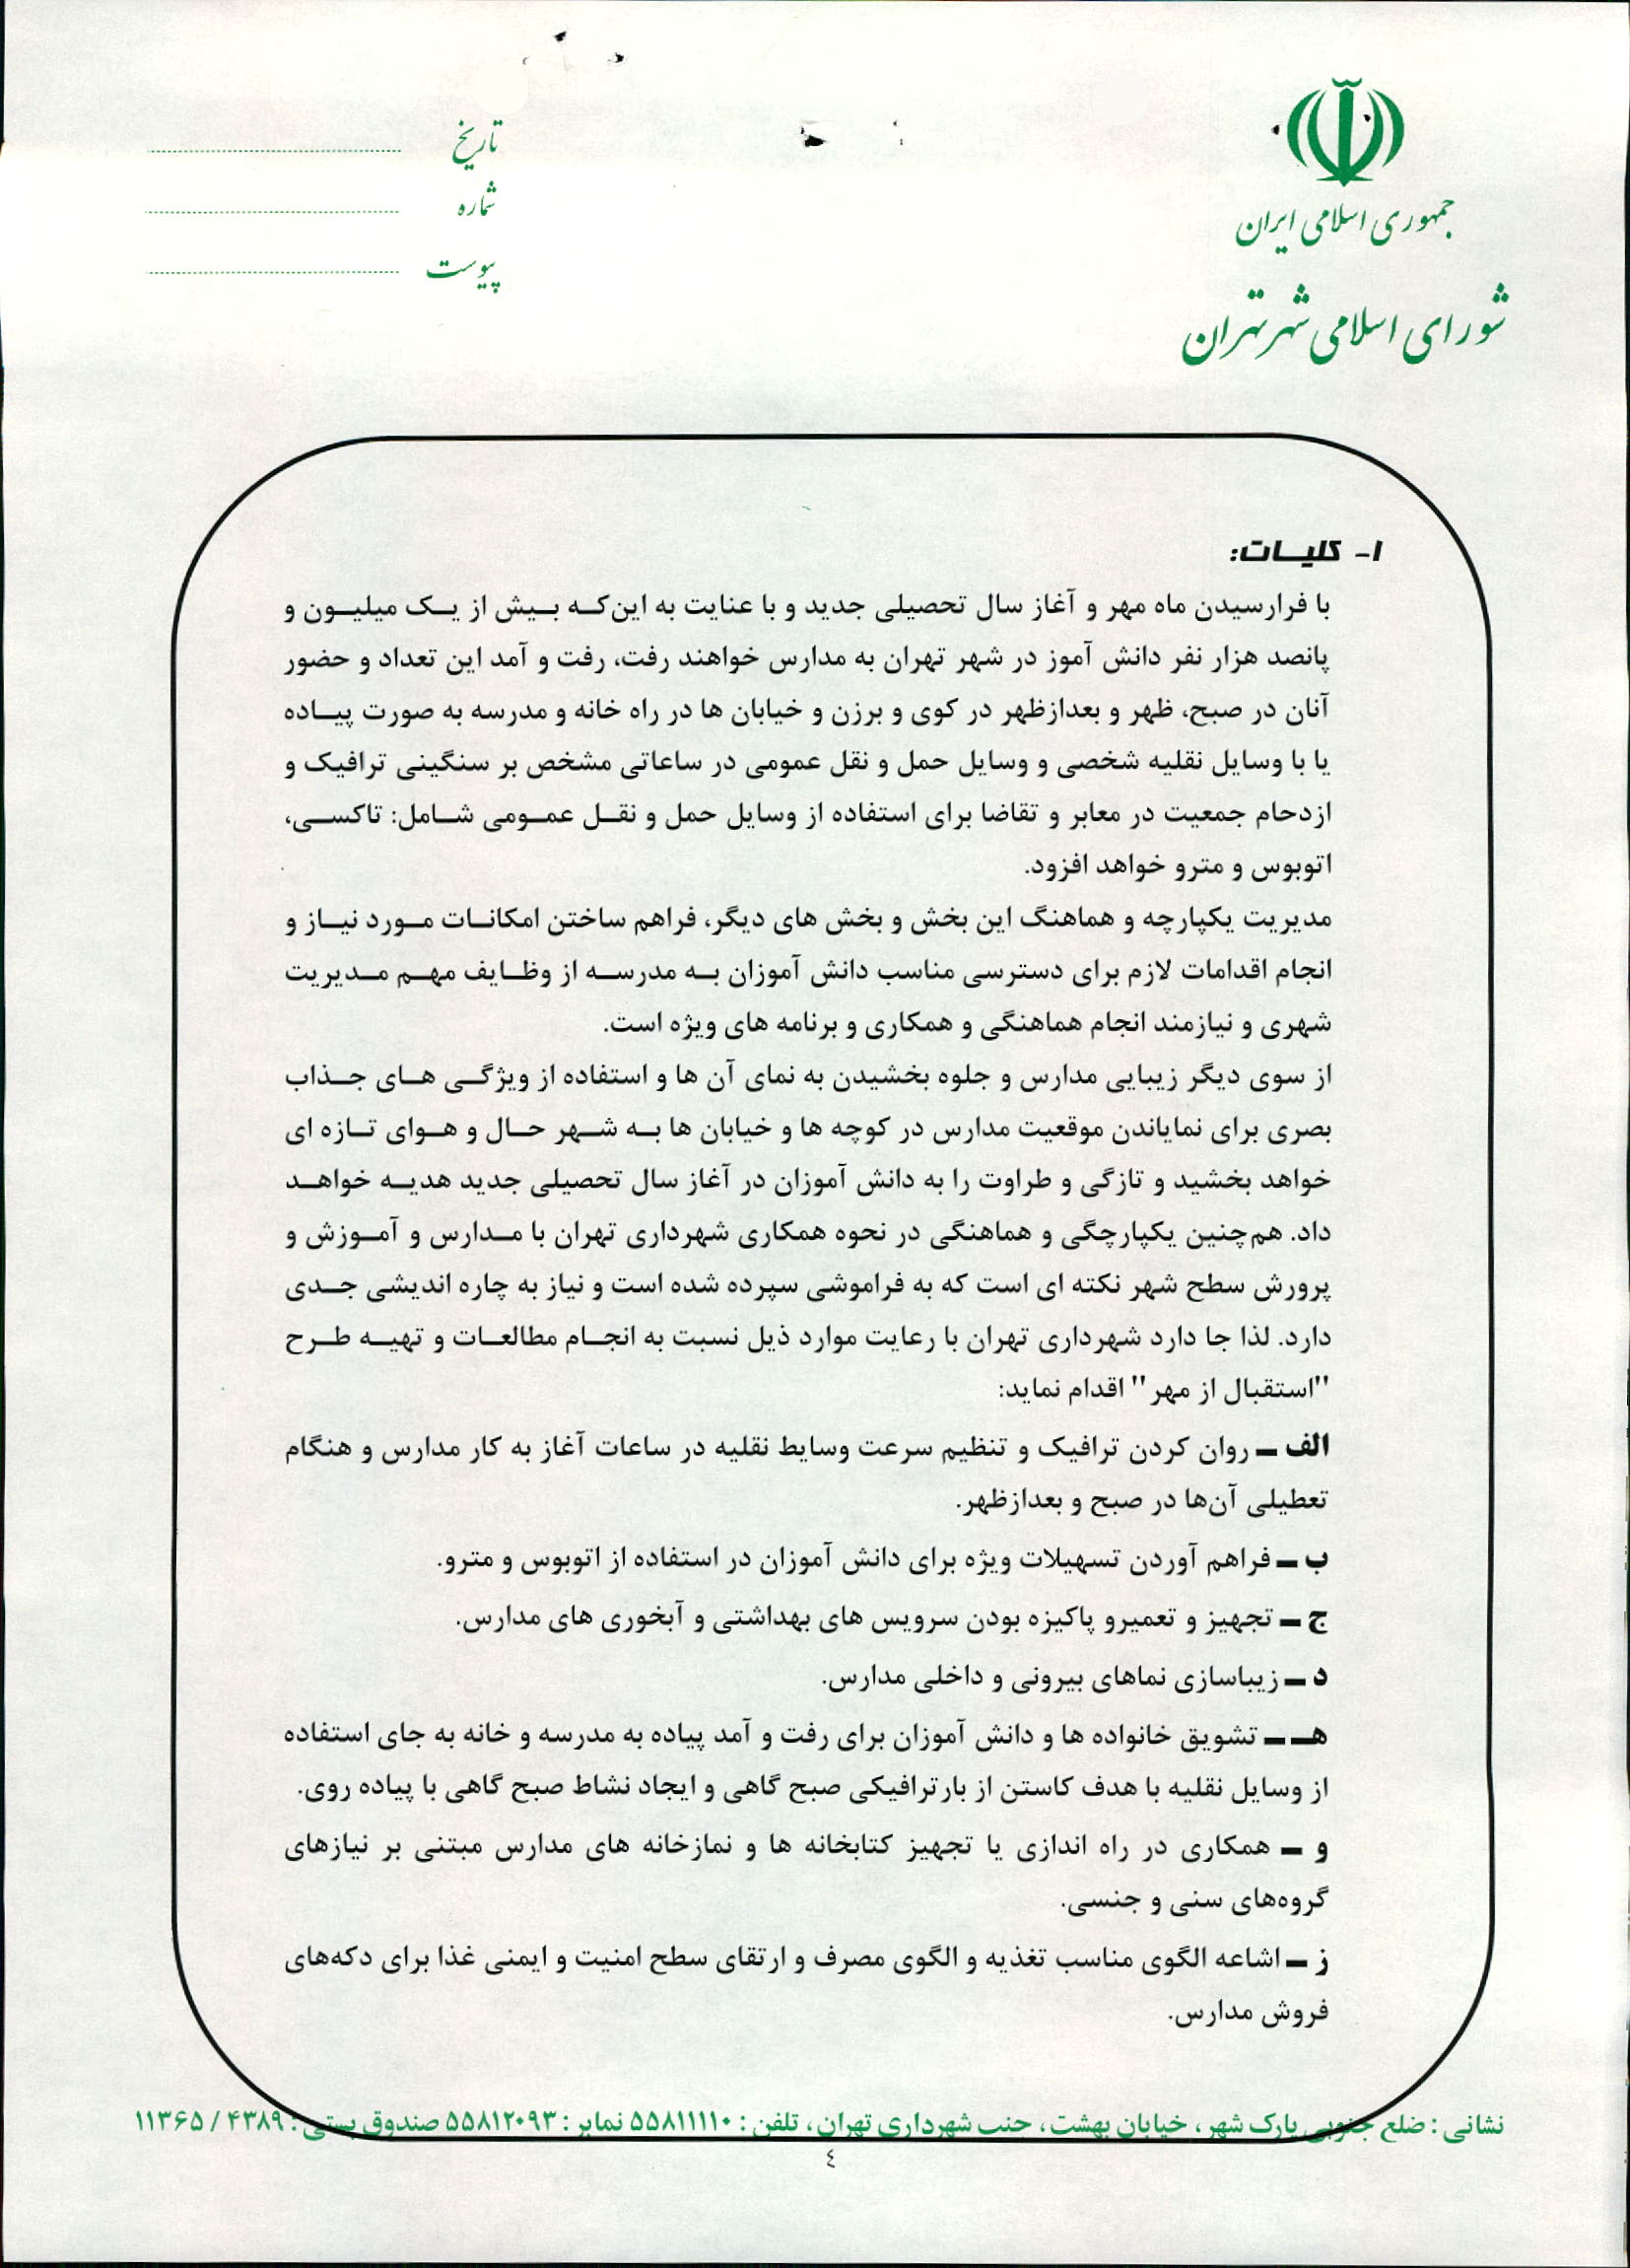 جمهوری اسلامی ایران
شورای اسلامی شهر تهران
تاریخ
شماره
پیوست
۱- کلیـات:
با فرارسیدن ماه مهر و آغاز سال تحصیلی جدید و با عنایت به این‌که بیش از یک میلیون و
پانصد هزار نفر دانش آموز در شهر تهران به مدارس خواهند رفت، رفت و آمد این تعداد و حضور
آنان در صبح، ظهر و بعدازظهر در کوی و برزن و خیابان ها در راه خانه و مدرسه به صورت پیاده
یا با وسایل نقلیه شخصی و وسایل حمل و نقل عمومی در ساعاتی مشخص بر سنگینی ترافیک و
ازدحام جمعیت در معابر و تقاضا برای استفاده از وسایل حمل و نقل عمومی شامل: تاکسی،
اتوبوس و مترو خواهد افزود.
مدیریت یکپارچه و هماهنگ این بخش و بخش های دیگر، فراهم ساختن امکانات مورد نیاز و
انجام اقدامات لازم برای دسترسی مناسب دانش آموزان به مدرسه از وظایف مهم مدیریت
شهری و نیازمند انجام هماهنگی و همکاری و برنامه های ویژه است.
از سوی دیگر زیبایی مدارس و جلوه بخشیدن به نمای آن ها و استفاده از ویژگی های جذاب
بصری برای نمایاندن موقعیت مدارس در کوچه ها و خیابان ها به شهر حال و هوای تازه ای
خواهد بخشید و تازگی و طراوت را به دانش آموزان در آغاز سال تحصیلی جدید هدیه خواهد
داد. هم‌چنین یکپارچگی و هماهنگی در نحوه همکاری شهرداری تهران با مدارس و آموزش و
پرورش سطح شهر نکته ای است که به فراموشی سپرده شده است و نیاز به چاره اندیشی جدی
دارد. لذا جا دارد شهرداری تهران با رعایت موارد ذیل نسبت به انجام مطالعات و تهیه طرح
"استقبال از مهر" اقدام نماید:
الف – روان کردن ترافیک و تنظیم سرعت وسایط نقلیه در ساعات آغاز به کار مدارس و هنگام
تعطیلی آن‌ها در صبح و بعدازظهر.
ب – فراهم آوردن تسهیلات ویژه برای دانش آموزان در استفاده از اتوبوس و مترو.
ج – تجهیز و تعمیرو پاکیزه بودن سرویس های بهداشتی و آبخوری های مدارس.
د – زیباسازی نماهای بیرونی و داخلی مدارس.
هـ – تشویق خانواده ها و دانش آموزان برای رفت و آمد پیاده به مدرسه و خانه به جای استفاده
از وسایل نقلیه با هدف کاستن از بارترافیکی صبح گاهی و ایجاد نشاط صبح گاهی با پیاده روی.
و – همکاری در راه اندازی یا تجهیز کتابخانه ها و نمازخانه های مدارس مبتنی بر نیازهای
گروه‌های سنی و جنسی.
ز – اشاعه الگوی مناسب تغذیه و الگوی مصرف و ارتقای سطح امنیت و ایمنی غذا برای دکه‌های
فروش مدارس.
نشانی : ضلع جنوبی پارک شهر ، خیابان بهشت ، جنب شهرداری تهران ، تلفن : ۵۵۸۱۱۱۱۰ نمابر : ۵۵۸۱۲۰۹۳ صندوق پستی : ۴۳۸۹ / ۱۱۳۶۵
٤